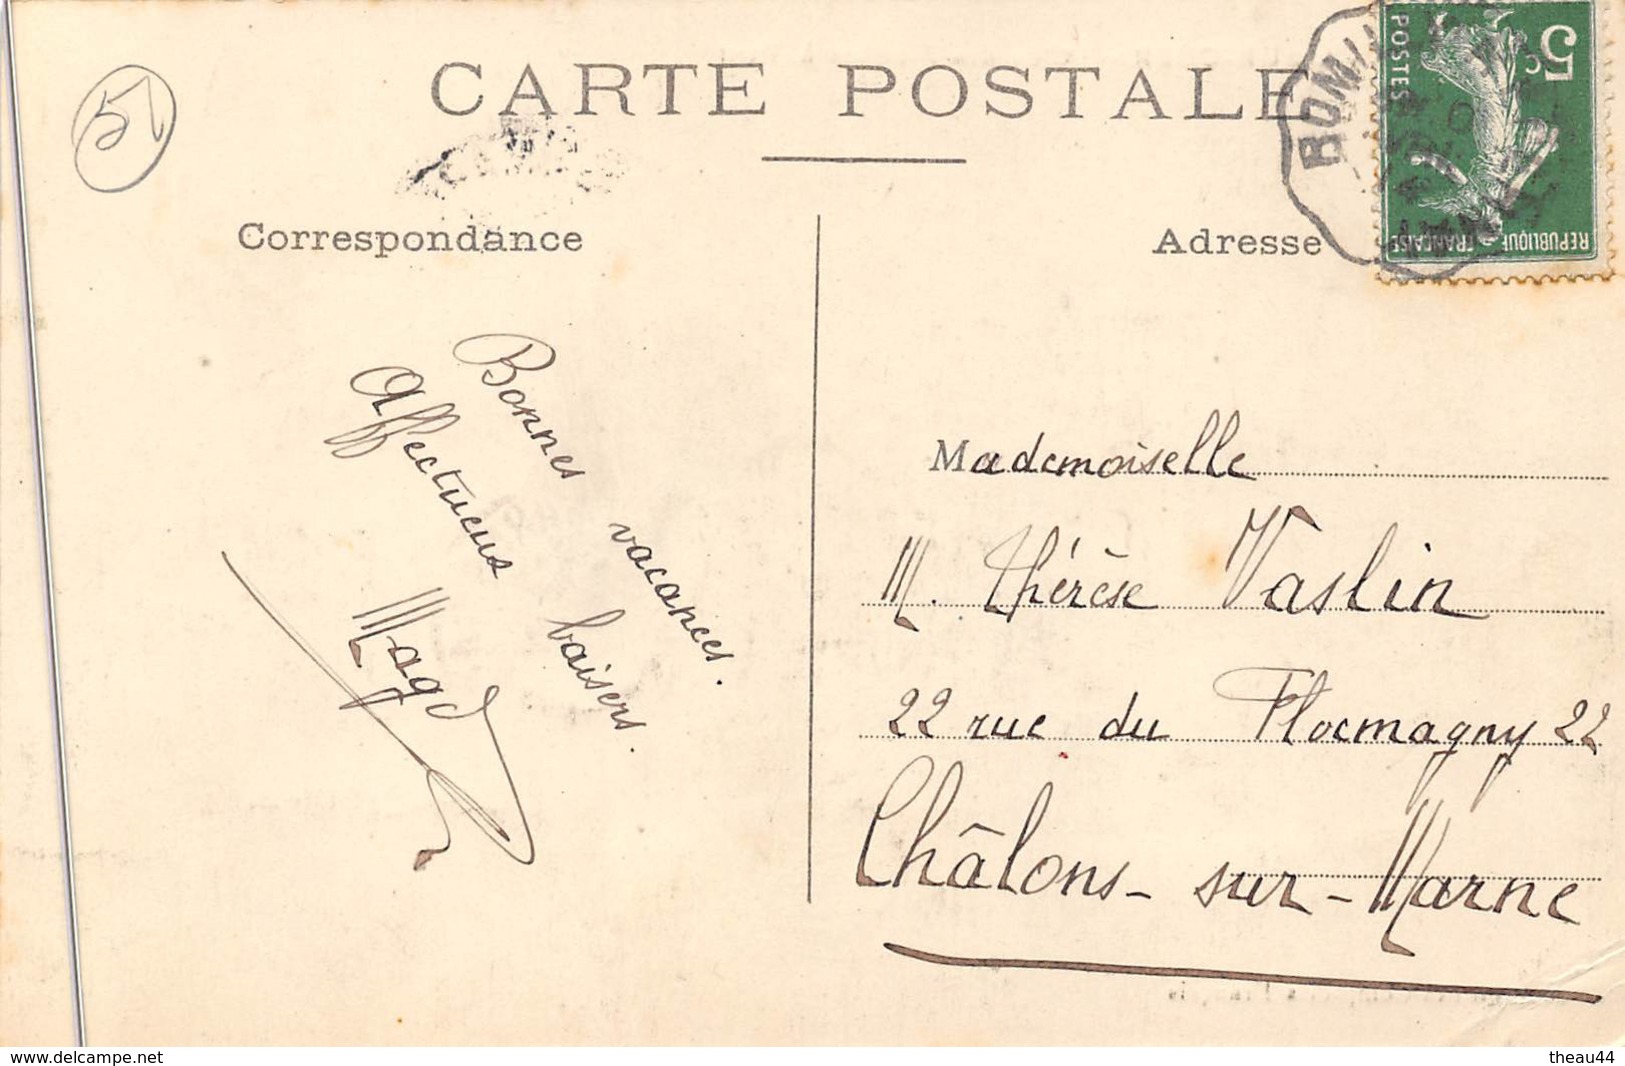 51
CARTE POSTALE
Correspondance
Adresse
5c
POSTES
REPUBLIQUE FRANÇAISE
Bonnes vacances.
Affectueux baisers.
Magd
Mademoiselle
M. Thérèse Vaslin
22 rue du Flocmagny 22
Châlons-sur-Marne
www.delcampe.net
theau44